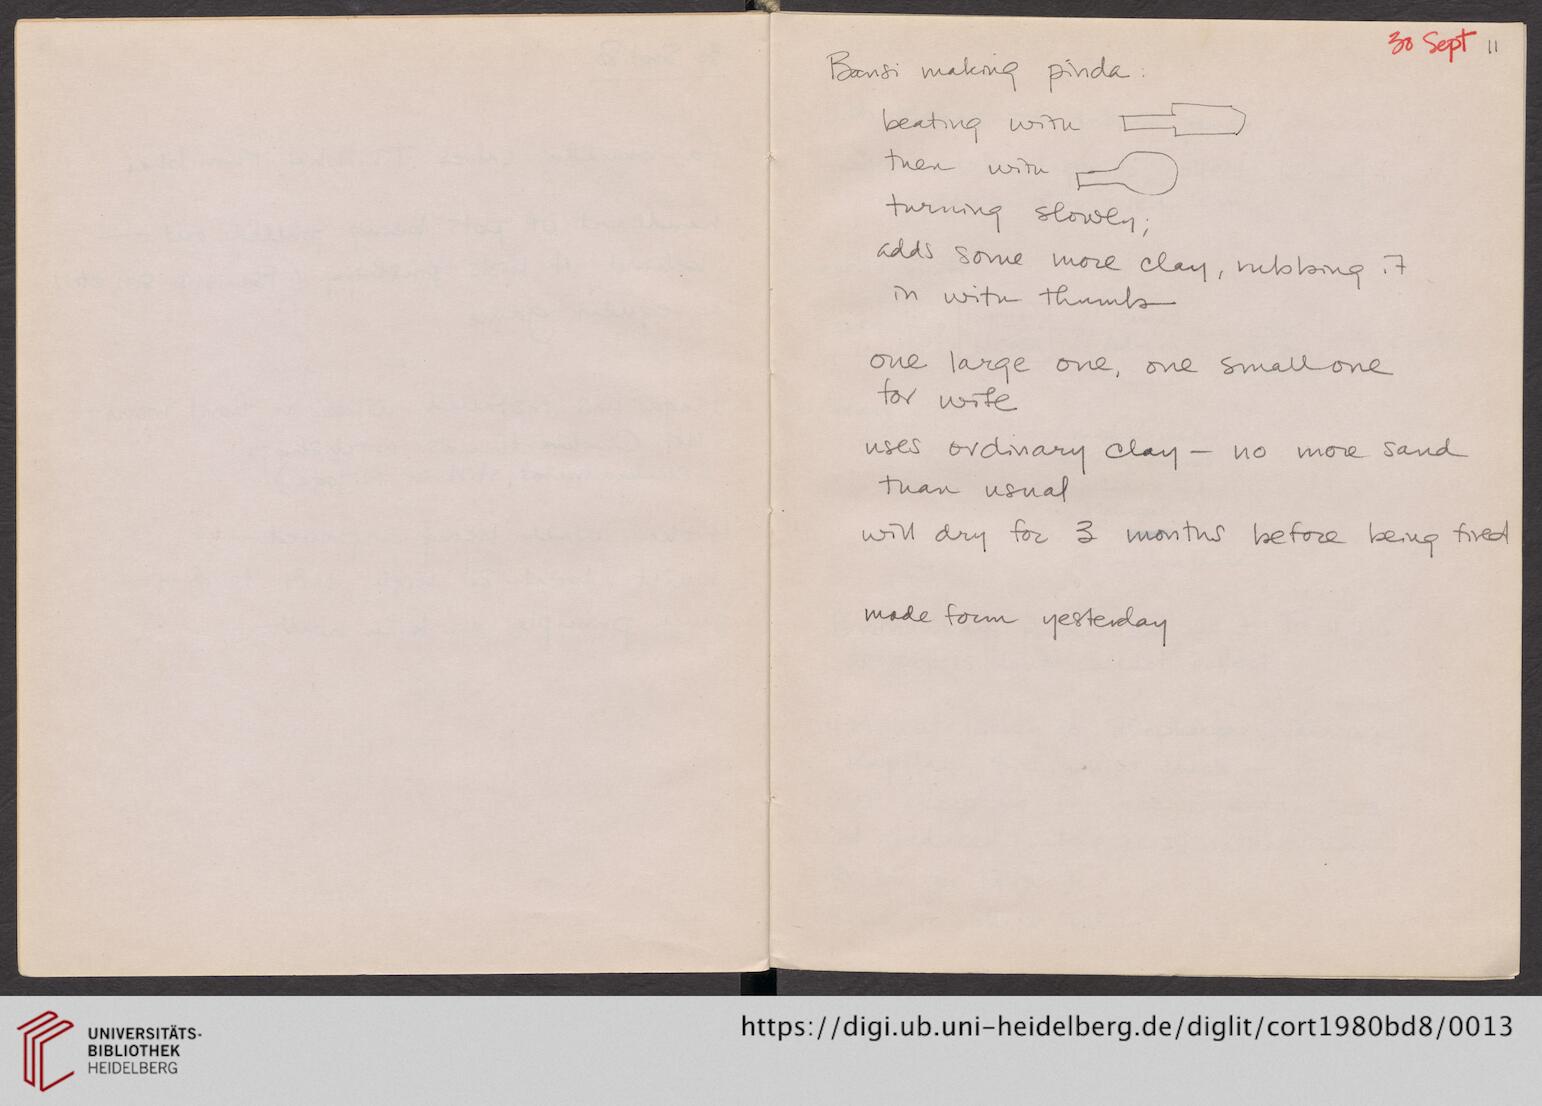 30 Sept 11
Bansi making pinda :
beating with
then with
turning slowly;
adds some more clay, rubbing it
in with thumb
one large one, one small one
for wife
uses ordinary clay – no more sand
than usual
will dry for 3 months before being fired
made form yesterday
UNIVERSITÄTS-
BIBLIOTHEK
HEIDELBERG
https://digi.ub.uni-heidelberg.de/diglit/cort1980bd8/0013